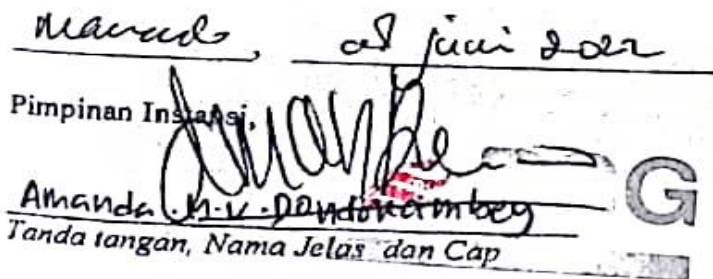 Manado, 08 Juni 2022
Pimpinan Instansi,
Amanda .M.V. Dondokambey
Tanda tangan, Nama Jelas dan Cap
G